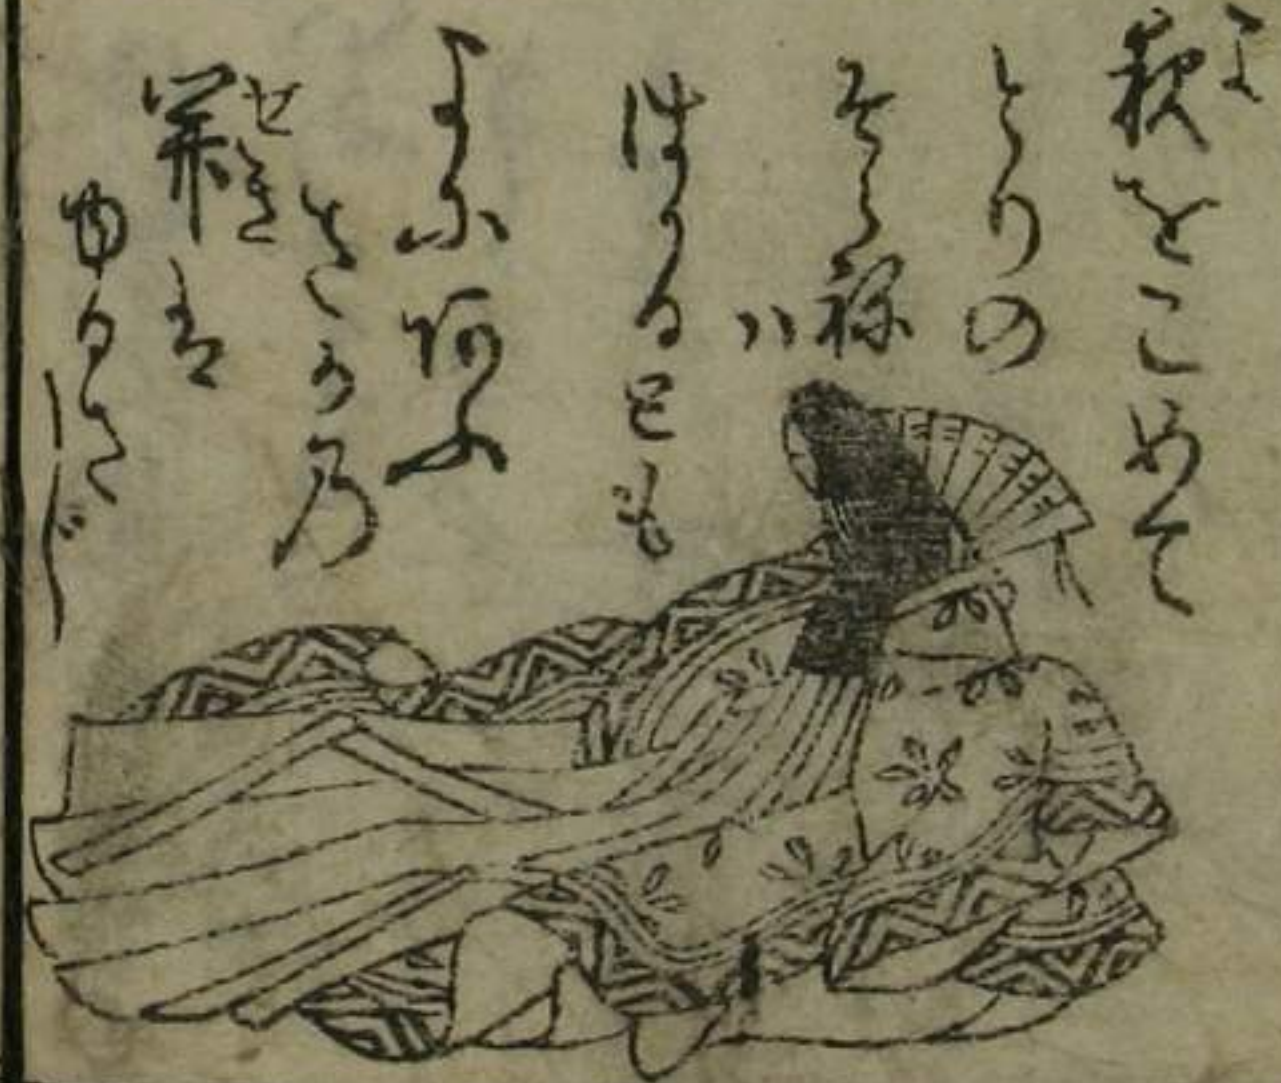 夜をこめて
とりの
そらね
ハ
はかるとも
よにあふ
さかの
関は
ゆるさじ
よ
せき